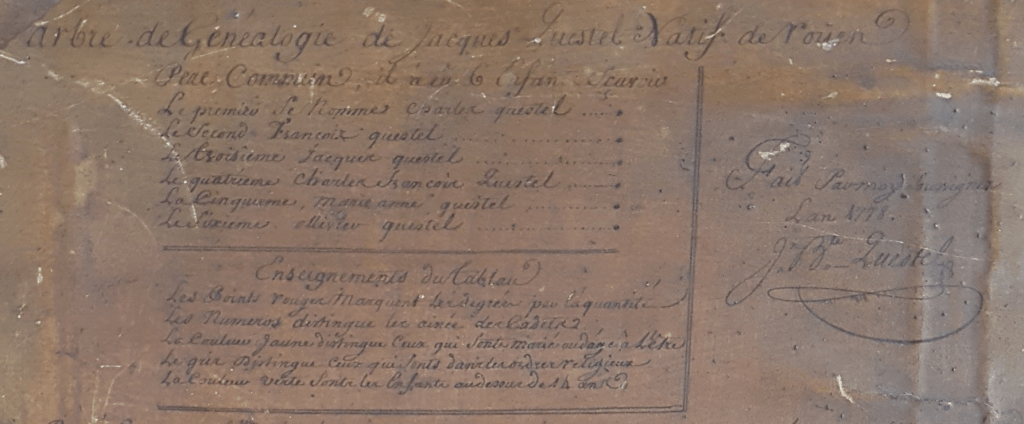 Arbre de Génealogie de Jacques Questel Natif de Roüen
Pere Commun, il a eu 6 Enfan
Le premier se Nomme Charles questel
Le Second François questel
Le troisieme Jacques questel
Le quatrieme Charles François Questel
La Cinquieme, marie anne questel
Le Sixieme ollivier questel
Enseignements du Tablau
Les Points rouges Marquent les degrés par la quantité
Les Numeros distingue les ainée des Cadets
La Couleur Jaune distingue Ceux qui sonts marie ou dans
Le gris Distingue Ceux qui sonts dans les ordres religieux
La Couleur verte sont les Enfants au desour de 14 ans
Fait Par moy Sousigner
Lan
J. Bte Questel